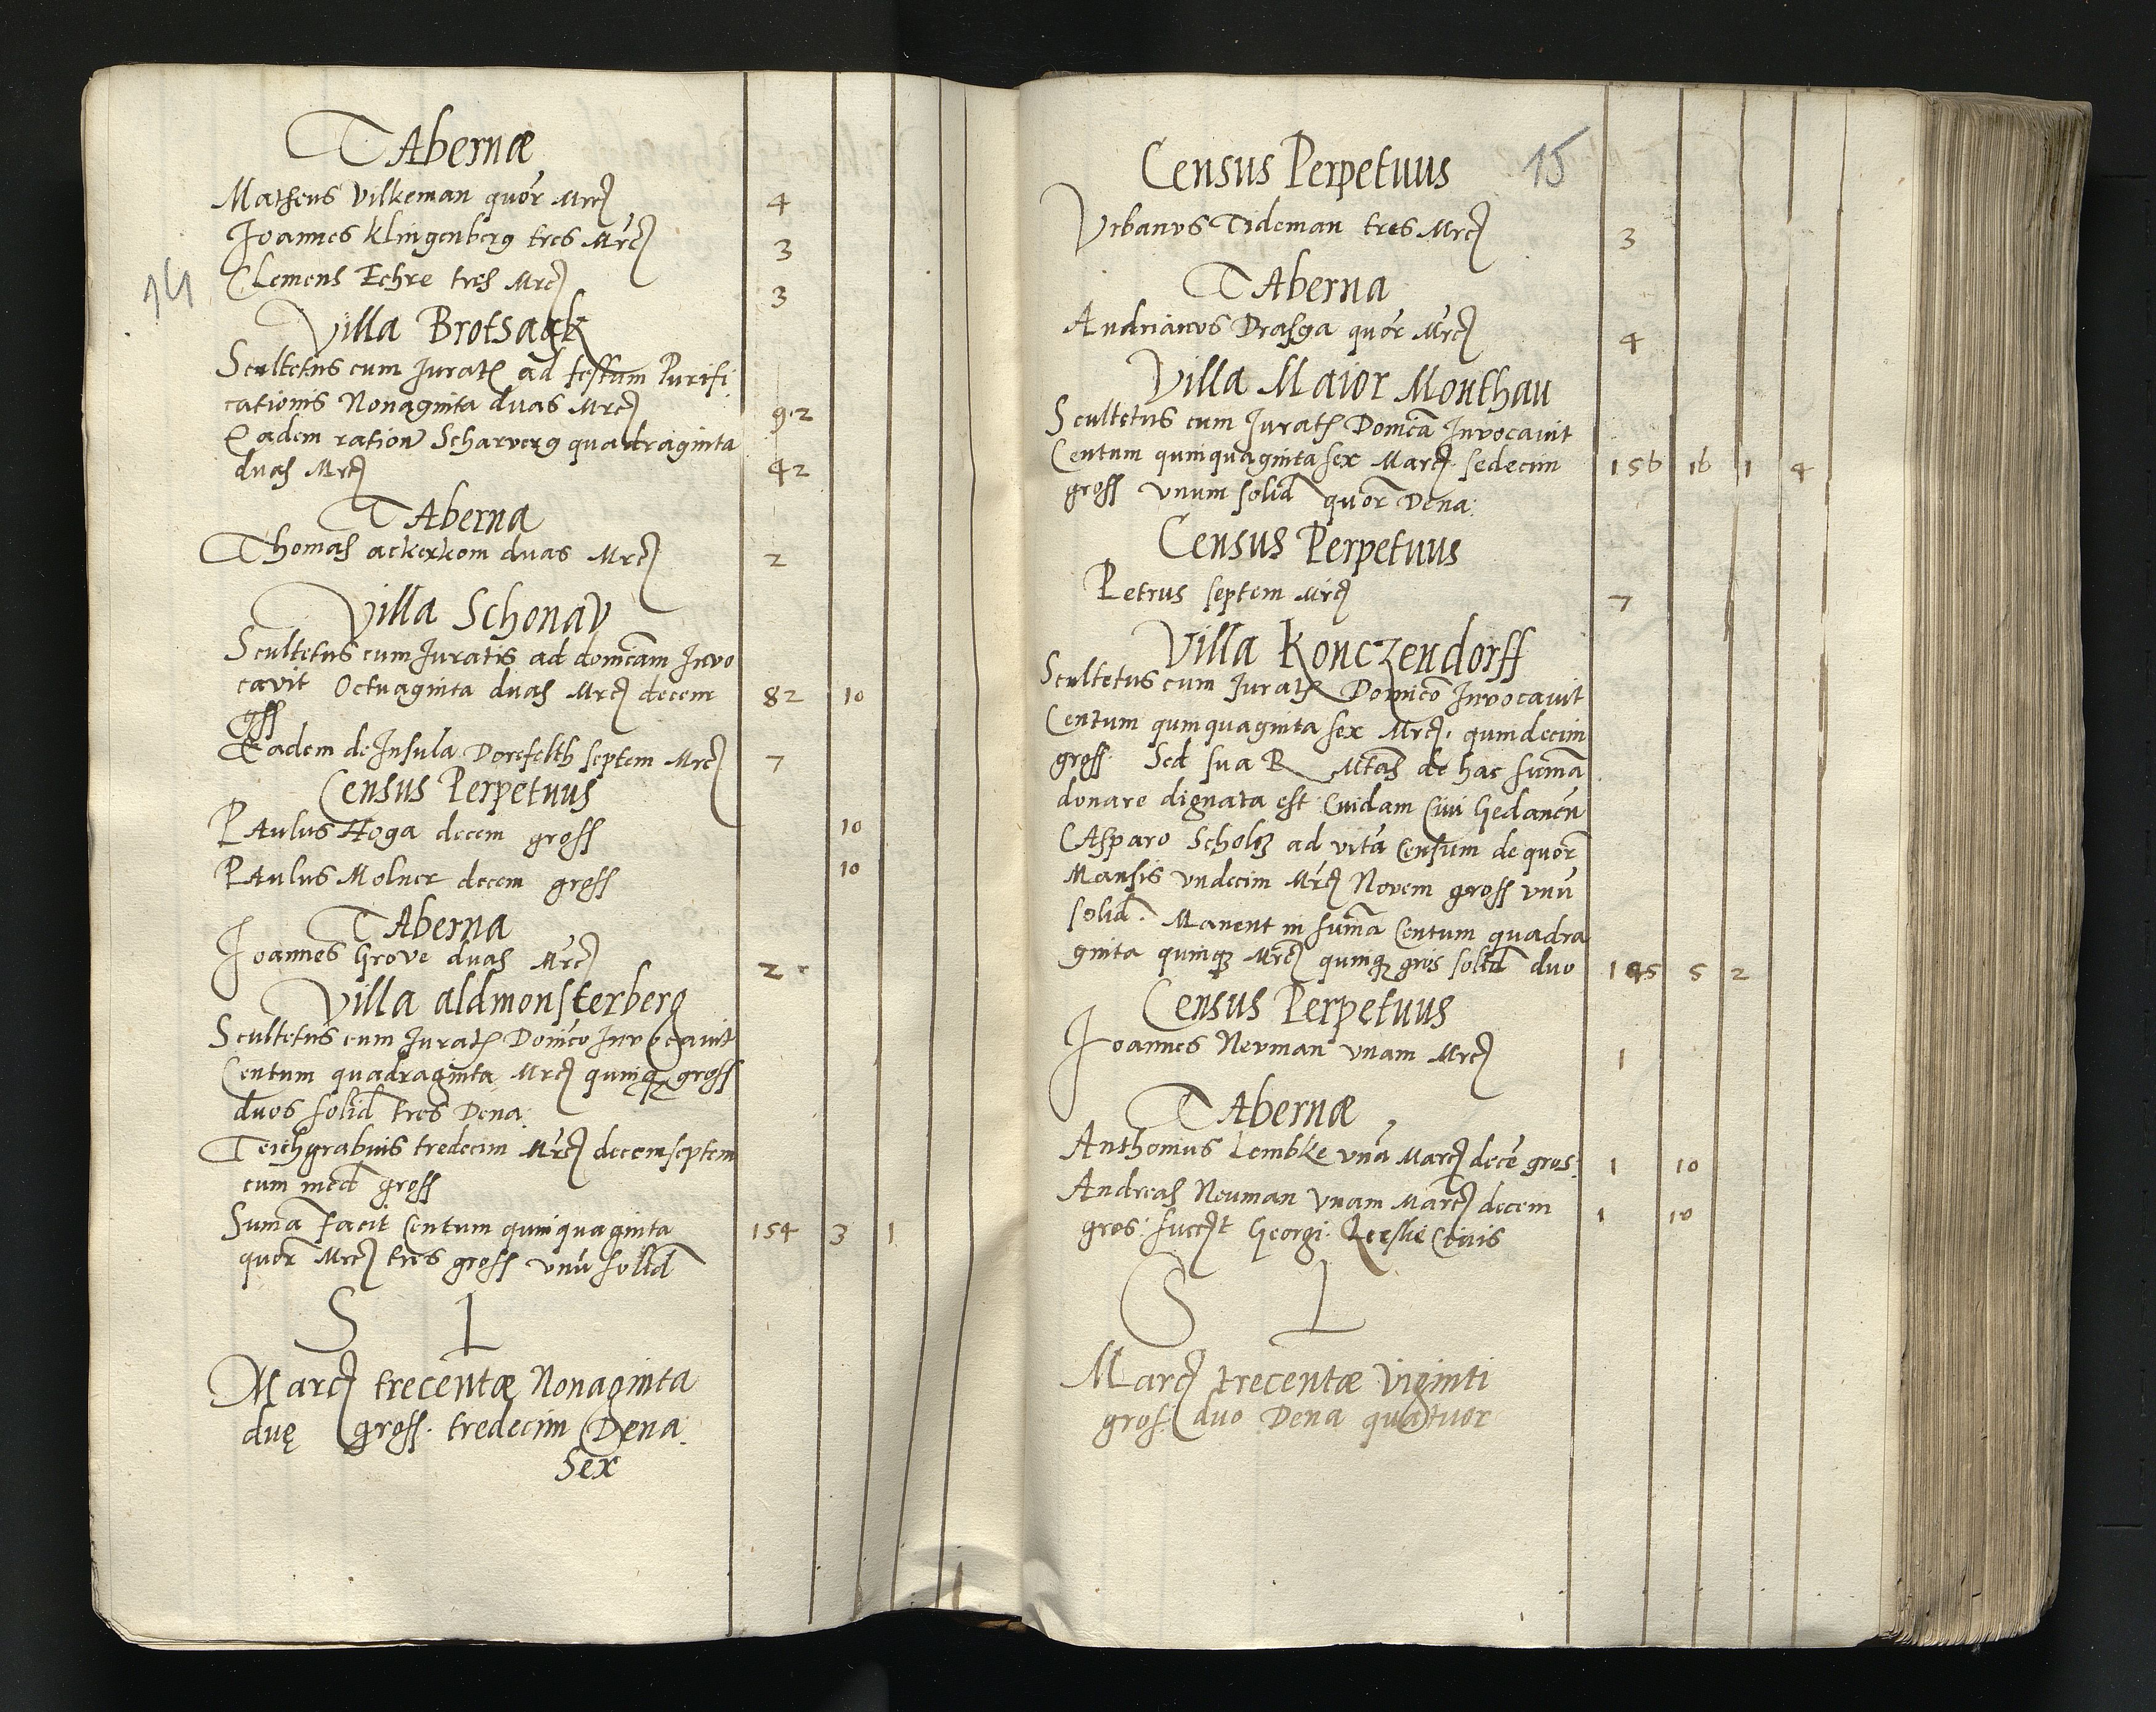 TAbernæ
Matheus Vilkeman quor Mrc 4
Joannes Klingenberg tres Mrc 3
14
Clemens Echre tres Mrc 3
Villa Brotsack
Scultetus cum Jurat ad festum Purifi
cationis Nonaginta duas Mrc 92
Eadem ration Scharverg quadraginta
duas Mrc 42
TAberna
Thomas ackerkom duas Mrc 2
Villa Schonav
Scultetus cum Juratis ad domicam Invo
cavit Octuaginta duas Mrc decem 82 10
gss
Eadem de Insula Dorefelth septem Mrc 7
Census Perpetuus
PAulus Hoga decem gross 10
PAulus Molner decem gross 10
TAberna
Joannes Grove duas Mrc 2
Villa aldmonsterberg
Scultetus cum Jurat Domco Invocavit
Centum quadraginta Mrc quinq gross
duos solid tres Dena:
Teichgrabnis tredecim Mrc decemseptem
cum med gross
Suma facit Centum quinquaginta 154 3 1
quor Mrc tres gross unu solid
S L
Marc trecentæ Nonaginta
duę gross. tredecim Dena:
Sex
Census Perpetuus 15
Vrbanus Tideman tres Mrc 3
TAberna
Andrianus Drasga quor Mrc 4
Villa Maior Monthau
Scultetus cum Jurat Domica Invocavit
Centum quinquaginta sex Marc sedecim 156 16 1 4
gross vnum solid quor Dena:
Census Perpetuus
Petrus septem Mrc 7
Villa Konczendorff
Scultetus cum Jurat Domico Invocavit
Centum quinquaginta sex Mrc. quindecim
gross. Sed sua R Mtas de hac suma
donare dignata est Cuidam Civi Gedancn
CAsparo Scholtz ad vita Censum de quor
Mansis vndecim Mrc Novem gross vnu
solid. Manent in suma Centum quadra
ginta quinq Mrc quinq gros solid duo 145 5 2
Census Perpetuus
Joannes Neuman vnam Mrc 1
TAbernæ
Anthonius Lembke vna Marc dece gros: 1 10
Andreas Neuman vnam Marc decem 1 10
gros: Georgi Civis
S L
Marc trecentæ viginti
gros. duo Dena quatuor